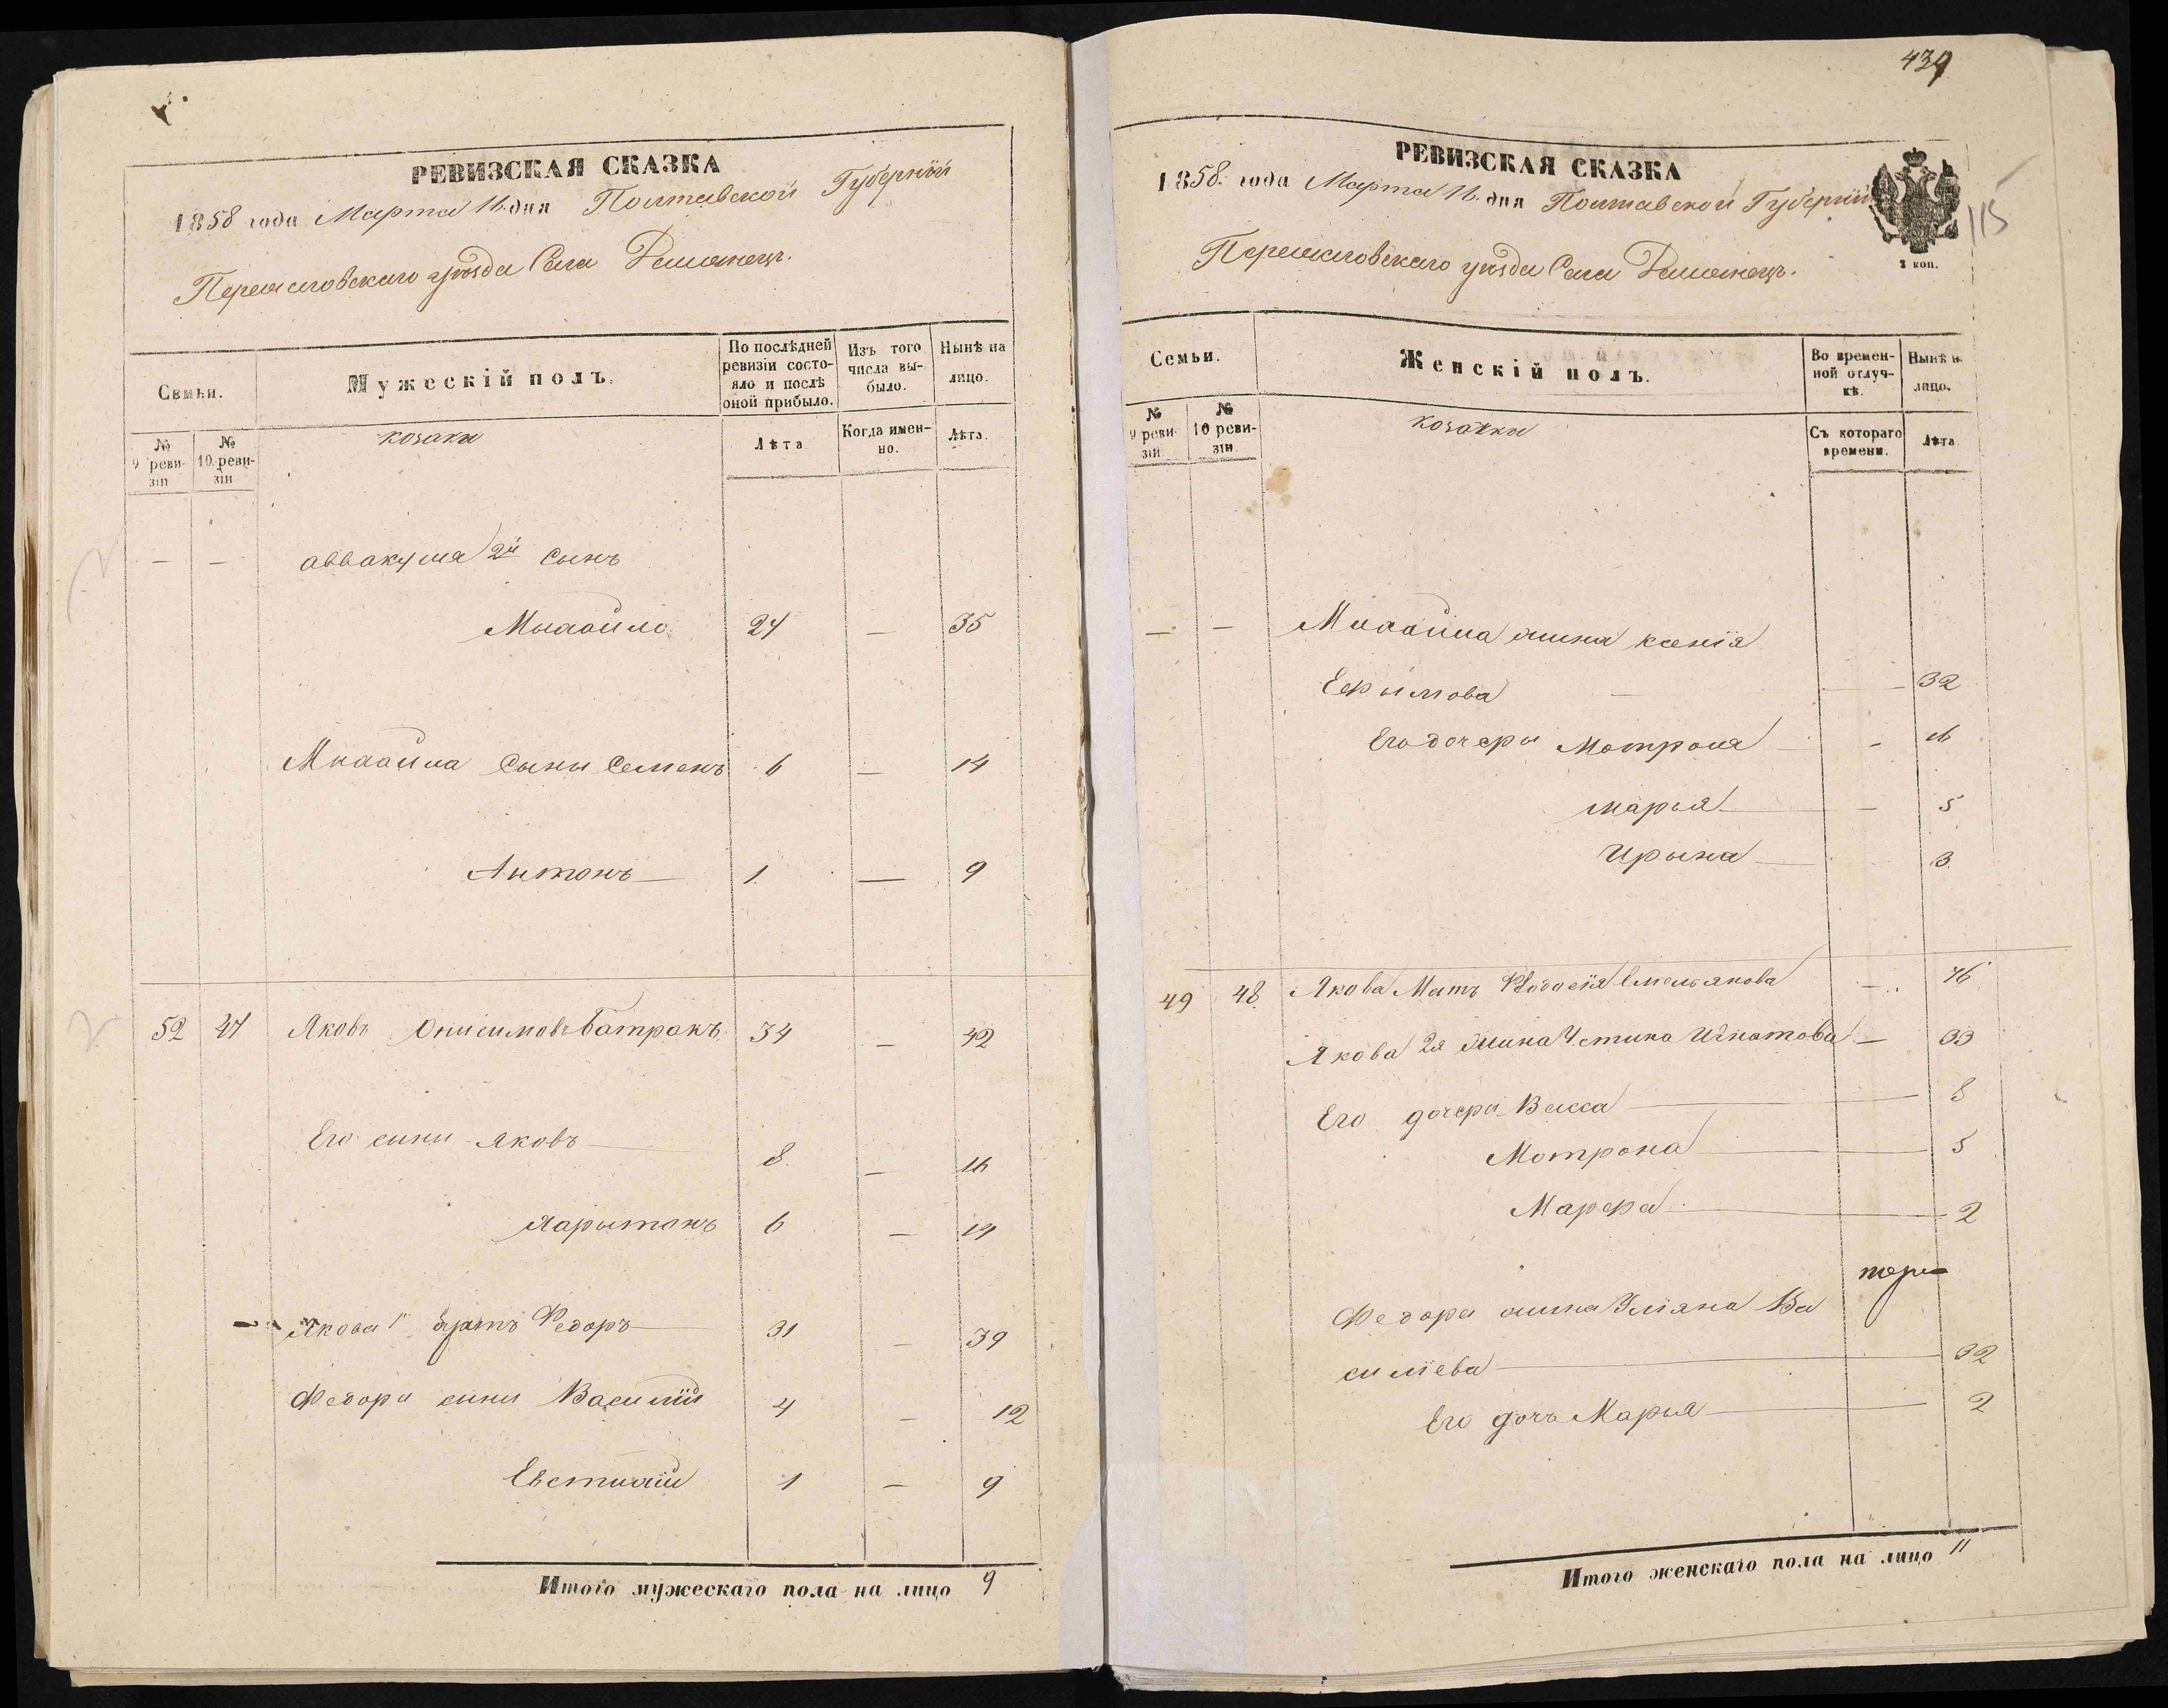 РЕВИЗСКАЯ СКАЗКА
1858 года Марта 16 дня Полтавской Губерніи
Переяславскаго уѣзда Села
Семьи.
Мужескій полъ.
По послѣдней ревизіи состояло и послѣ оной прибыло.
Изъ того числа выбыло.
Нынѣ на лицо.
№ 9 ревизіи
№ 10 ревизіи
козаки
Лѣта
Когда именно.
Лѣта.
— — Аввакума 2й сынъ
Михайло 24 — 35
Михайла сыны Семенъ 6 — 14
Антонъ 1 — 9
52 47 Яковъ Онисимовъ Батракъ 34 — 42
Его сыни Яковъ 8 — 16
Харытонъ 6 — 14
Якова 1й братъ Федоръ 31 — 39
Федора сыни Василій 4 — 12
Евстихій 1 — 9
Итого мужескаго пола на лицо 9
439
РЕВИЗСКАЯ СКАЗКА
1858 года Марта 16 дня Полтавской Губерніи
115
Переяславскаго уѣзда Села
2 коп.
Семьи.
Женскій полъ.
Во временной отлучкѣ.
Нынѣ н. лицо.
№ 9 ревизіи
№ 10 ревизіи
козачки
Съ котораго времени.
Лѣта
— — Михайла жина Ксенія
Ефимова — 32
Его дочеры Мотрона — 16
Марья — 5
Ирына 3
49 48 Якова Мать Феодосія Емельянова — 76
Якова 2я жина Устина Игнатова — 33
Его дочери Васса 8
Мотрона 5
Марфа 2
Федора жина Уліяна Ва
силіева 32
Его дочь Марья 2
Итого женскаго пола на лицо 11